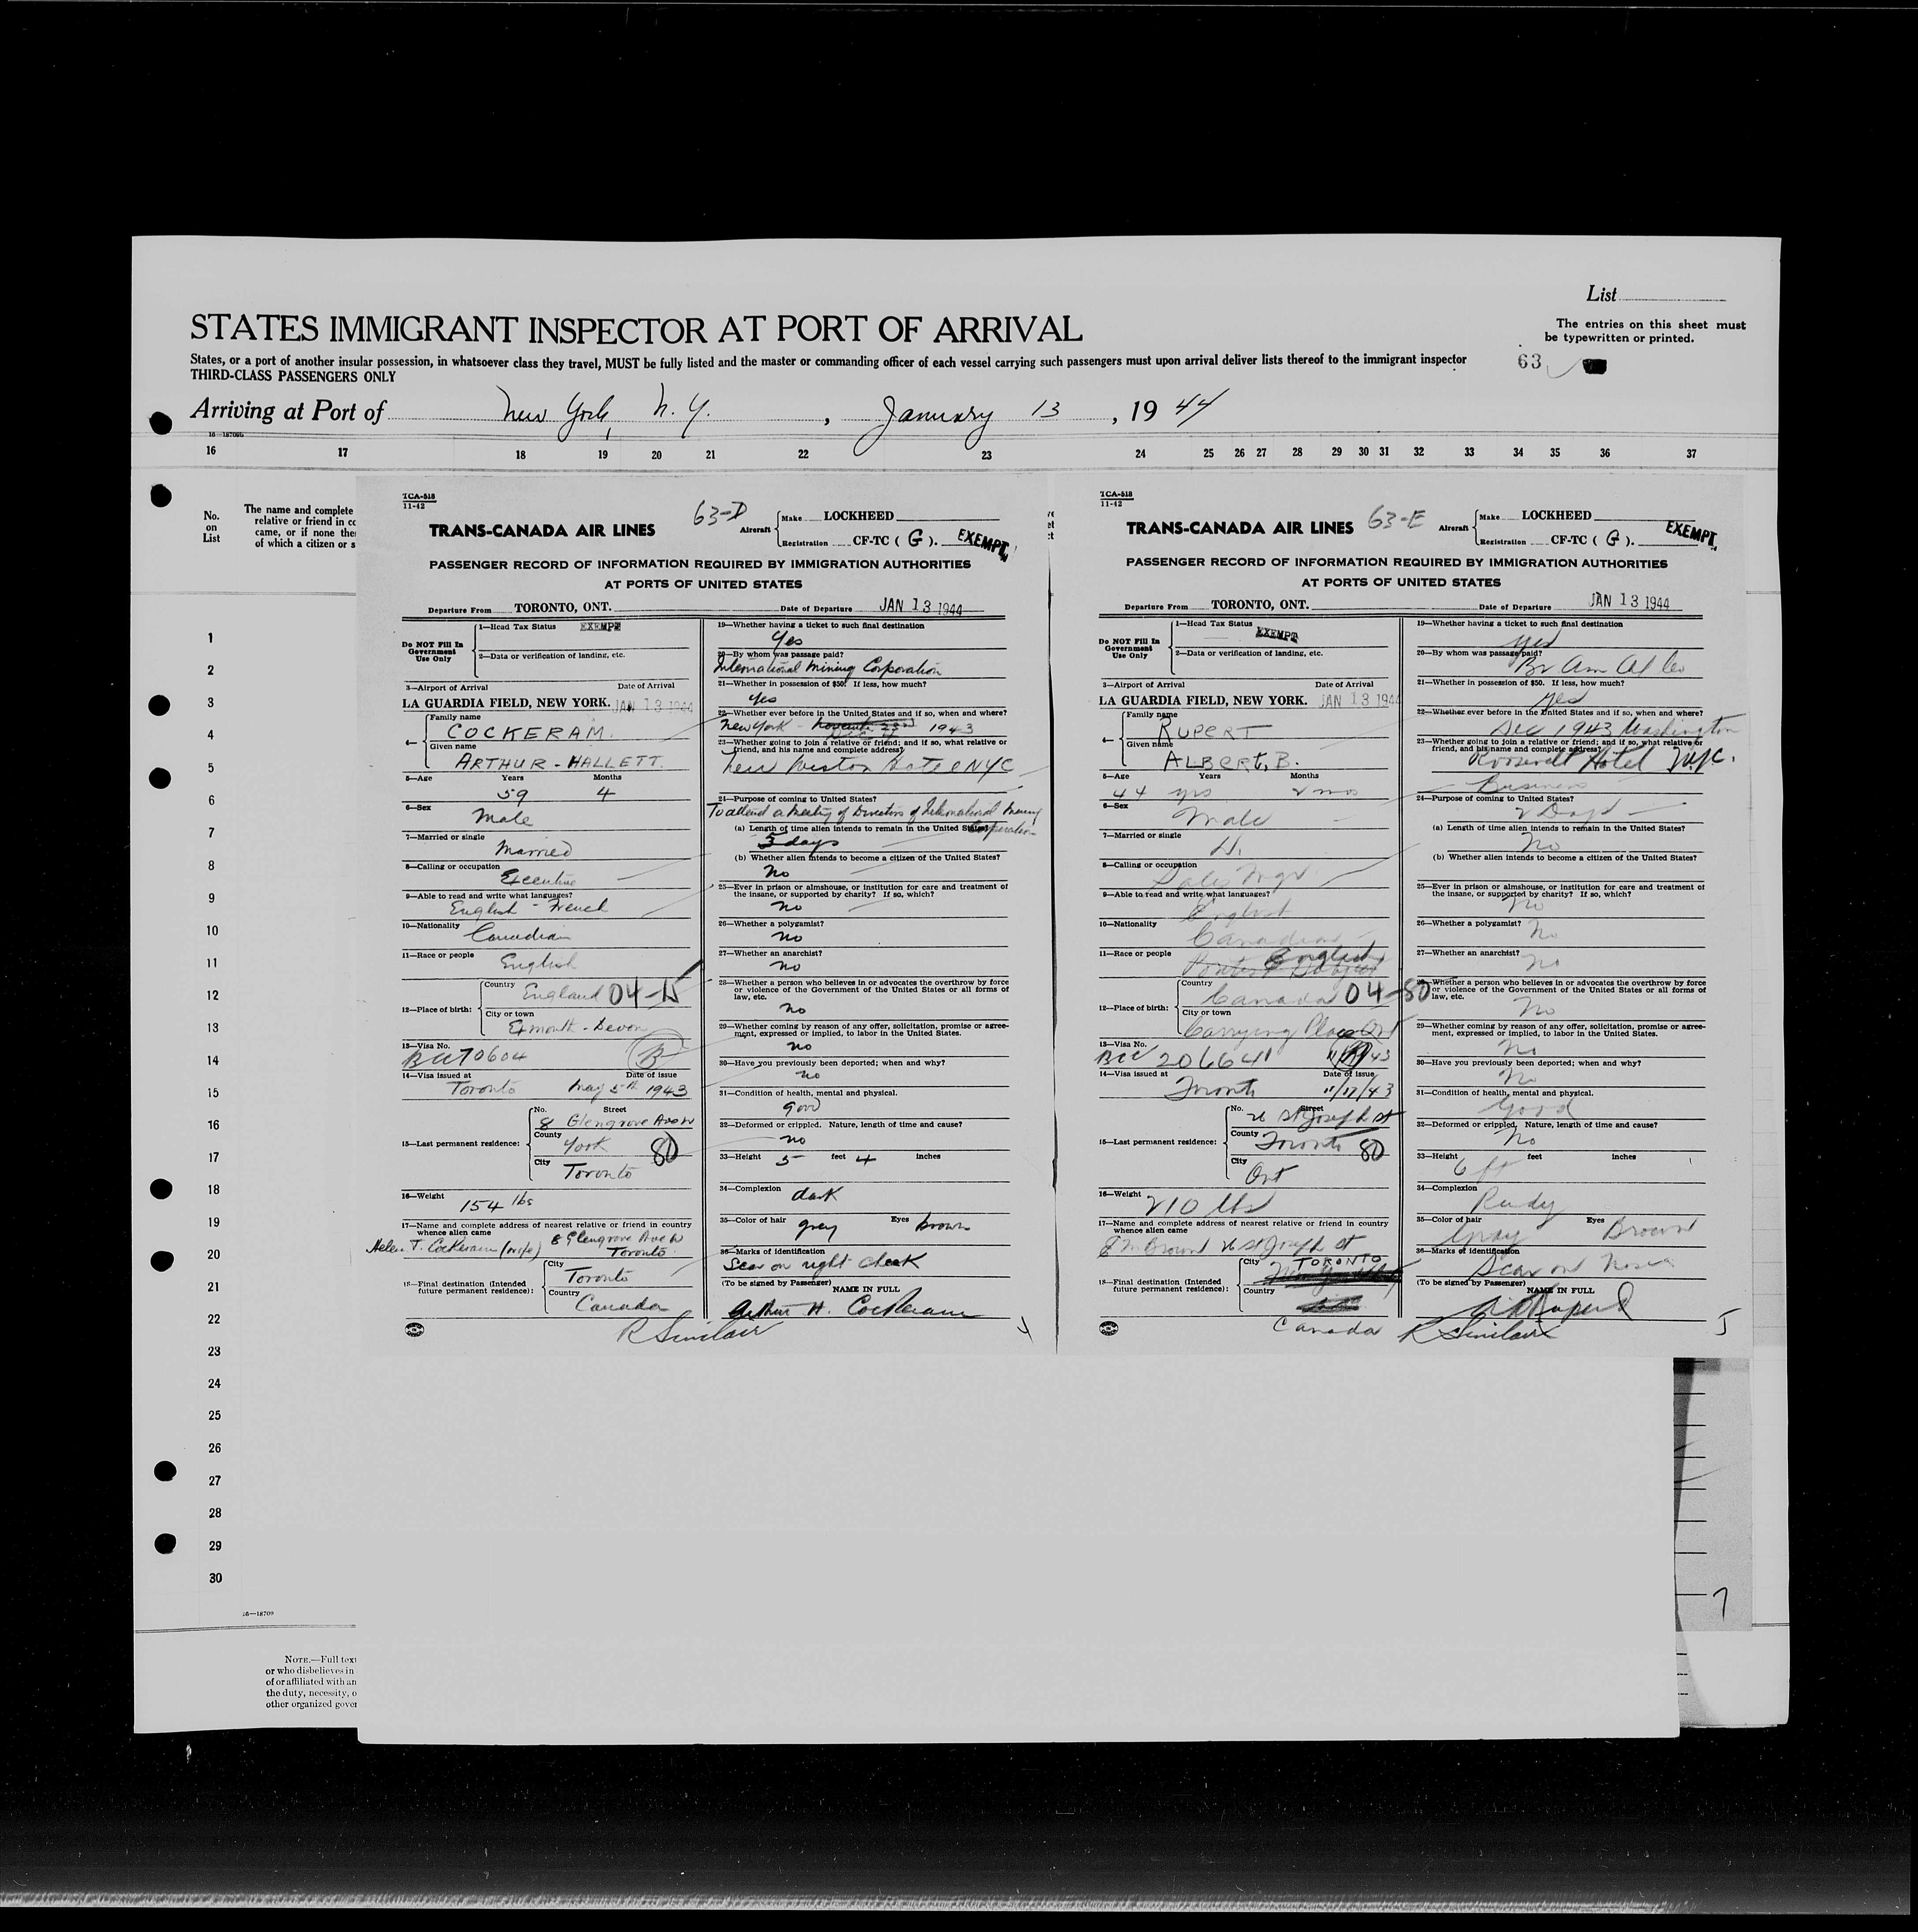 List
STATES IMMIGRANT INSPECTOR AT PORT OF ARRIVAL
The entries on this sheet must
be typewritten or printed.
States, or a port of another insular possession, in whatsoever class they travel, MUST be fully listed and the master or commanding officer of each vessel carrying such passengers must upon arrival deliver lists thereof to the immigrant inspector
THIRD-CLASS PASSENGERS ONLY
63
Arriving at Port of New York, N. Y., January 13, 1944
16 17 18 19 20 21 22 23 24 25 26 27 28 29 30 31 32 33 34 35 36 37
No.
on
List
The name and complete
relative or friend in co
came, or if none the
of which a citizen or s
1
2
3
4
5
6
7
8
9
10
11
12
13
14
15
16
17
18
19
20
21
22
23
24
25
26
27
28
29
30
16—18709
NOTE.—Full text
or who disbelieves in
of or affiliated with an
the duty, necessity, o
other organized gover
TCA-518
11-42
63-D
TRANS-CANADA AIR LINES
Aircraft Make LOCKHEED
Registration CF-TC ( G ).
EXEMPT
PASSENGER RECORD OF INFORMATION REQUIRED BY IMMIGRATION AUTHORITIES
AT PORTS OF UNITED STATES
Departure From TORONTO, ONT. Date of Departure JAN 13 1944
Do NOT Fill In
Government
Use Only
1—Head Tax Status EXEMPT
2—Data or verification of landing, etc.
3—Airport of Arrival Date of Arrival
LA GUARDIA FIELD, NEW YORK. JAN 13 1944
4— Family name
COCKERAM.
Given name
ARTHUR-HALLETT.
5—Age Years Months
59 4
6—Sex
Male
7—Married or single
Married
8—Calling or occupation
Executive
9—Able to read and write what languages?
English - French
10—Nationality
Canadian
11—Race or people
English
12—Place of birth:
Country
England 04-
City or town
Exmouth - Devon
13—Visa No.
70604 B
14—Visa issued at Date of issue
Toronto May 5th 1943
15—Last permanent residence:
No. Street
8 Glengrove Ave W
County
York 80
City
Toronto
16—Weight
154 lbs
17—Name and complete address of nearest relative or friend in country
whence alien came
8 Glengrove Ave W
Helen T. Cockeram (wife) Toronto
18—Final destination (Intended
future permanent residence):
City
Toronto
Country
Canada
R Sinclair
19—Whether having a ticket to such final destination
Yes
20—By whom was passage paid?
International Mining Corporation
21—Whether in possession of $50. If less, how much?
Yes
22—Whether ever before in the United States and if so, when and where?
New York - 1943
23—Whether going to join a relative or friend; and if so, what relative or
friend, and his name and complete address?
New Weston Hotel NYC
24—Purpose of coming to United States?
To attend a meeting of Directors of International Mining
Corporation
(a) Length of time alien intends to remain in the United States?
3 days
(b) Whether alien intends to become a citizen of the United States?
No
25—Ever in prison or almshouse, or institution for care and treatment of
the insane, or supported by charity? If so, which?
no
26—Whether a polygamist?
no
27—Whether an anarchist?
no
28—Whether a person who believes in or advocates the overthrow by force
or violence of the Government of the United States or all forms of
law, etc.
no
29—Whether coming by reason of any offer, solicitation, promise or agree-
ment, expressed or implied, to labor in the United States.
no
30—Have you previously been deported; when and why?
no
31—Condition of health, mental and physical.
good
32—Deformed or crippled. Nature, length of time and cause?
no
33—Height 5 feet 4 inches
34—Complexion
dark
35—Color of hair grey Eyes brown
36—Marks of identification
Scar on right cheek
(To be signed by Passenger) NAME IN FULL
Arthur H. Cockeram
TCA-518
11-42
63-E
TRANS-CANADA AIR LINES
Aircraft Make LOCKHEED
Registration CF-TC ( G ).
EXEMPT
PASSENGER RECORD OF INFORMATION REQUIRED BY IMMIGRATION AUTHORITIES
AT PORTS OF UNITED STATES
Departure From TORONTO, ONT. Date of Departure JAN 13 1944
Do NOT Fill In
Government
Use Only
1—Head Tax Status EXEMPT
2—Data or verification of landing, etc.
3—Airport of Arrival Date of Arrival
LA GUARDIA FIELD, NEW YORK. JAN 13 1944
4— Family name
RUPERT
Given name
ALBERT, B.
5—Age Years Months
44 yrs 2 mos
6—Sex
Male
7—Married or single
8—Calling or occupation
Sales Mgr
9—Able to read and write what languages?
English
10—Nationality
Canadian
11—Race or people
English
12—Place of birth:
Country
Canada 04-80
City or town
Carrying Place Ont
13—Visa No.
BCC 206641
14—Visa issued at Date of issue
Toronto 11/17/43
15—Last permanent residence:
No. Street
26 St Joseph St
County
Toronto 80
City
Ont
16—Weight
210 lbs
17—Name and complete address of nearest relative or friend in country
whence alien came
E M Brown 26 St Joseph St
18—Final destination (Intended
future permanent residence):
City
TORONTO
Country
Canada
R Sinclair
19—Whether having a ticket to such final destination
yes
20—By whom was passage paid?
Br Am Oil Co
21—Whether in possession of $50. If less, how much?
yes
22—Whether ever before in the United States and if so, when and where?
Dec 1943 Washington
23—Whether going to join a relative or friend; and if so, what relative or
friend, and his name and complete address?
Roosevelt Hotel NYC.
Business
24—Purpose of coming to United States?
2 Days
(a) Length of time alien intends to remain in the United States?
No
(b) Whether alien intends to become a citizen of the United States?
25—Ever in prison or almshouse, or institution for care and treatment of
the insane, or supported by charity? If so, which?
No
26—Whether a polygamist?
No
27—Whether an anarchist?
No
28—Whether a person who believes in or advocates the overthrow by force
or violence of the Government of the United States or all forms of
law, etc.
No
29—Whether coming by reason of any offer, solicitation, promise or agree-
ment, expressed or implied, to labor in the United States.
No
30—Have you previously been deported; when and why?
No
31—Condition of health, mental and physical.
Good
32—Deformed or crippled. Nature, length of time and cause?
No
33—Height 6 ft feet inches
34—Complexion
Rudy
35—Color of hair Eyes
Gray Brown
36—Marks of identification
Scar on Nose
(To be signed by Passenger) NAME IN FULL